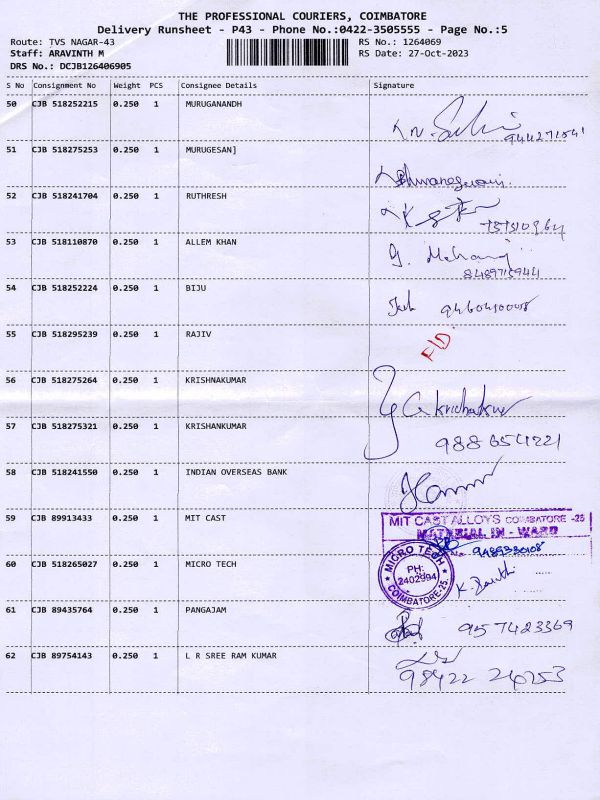 THE PROFESSIONAL COURIERS, COIMBATORE
Delivery Runsheet - P43 - Phone No.:0422-3505555 - Page No.:5
Route: TVS NAGAR-43 RS No.: 1264069
Staff: ARAVINTH M RS Date: 27-Oct-2023
DRS No.: DCJB126406905
S No Consignment No Weight PCS Consignee Details Signature
50 CJB 518252215 0.250 1 MURUGANANDH
944271541
51 CJB 518275253 0.250 1 MURUGESAN]
52 CJB 518241704 0.250 1 RUTHRESH
53 CJB 518110870 0.250 1 ALLEM KHAN
8489715944
54 CJB 518252224 0.250 1 BIJU
55 CJB 518295239 0.250 1 RAJIV
56 CJB 518275264 0.250 1 KRISHNAKUMAR
57 CJB 518275321 0.250 1 KRISHANKUMAR
988 654221
58 CJB 518241550 0.250 1 INDIAN OVERSEAS BANK
59 CJB 89913433 0.250 1 MIT CAST MIT CAST ALLOYS COIMBATORE -25
MATERIAL IN - WARD
60 CJB 518265027 0.250 1 MICRO TECH MICRO TECH
PH:
2402994
COIMBATORE-25.
61 CJB 89435764 0.250 1 PANGAJAM 9157423369
62 CJB 89754143 0.250 1 L R SREE RAM KUMAR
98422 24253